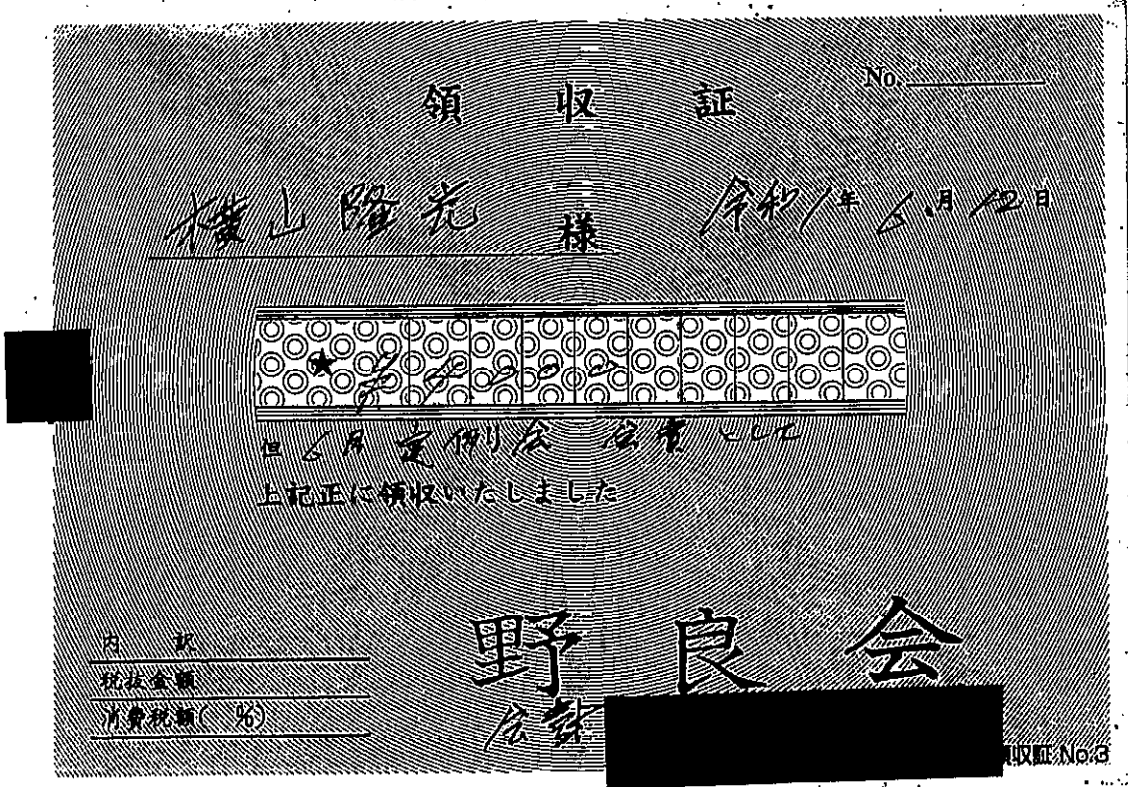 No.
領収証
横山隆光 様 令和1年6月12日
★ ¥4000
但 6月定例会 会費として
上記正に領収いたしました
内訳
税抜金額
消費税額( %)
野良会
会計
領収証 No.3